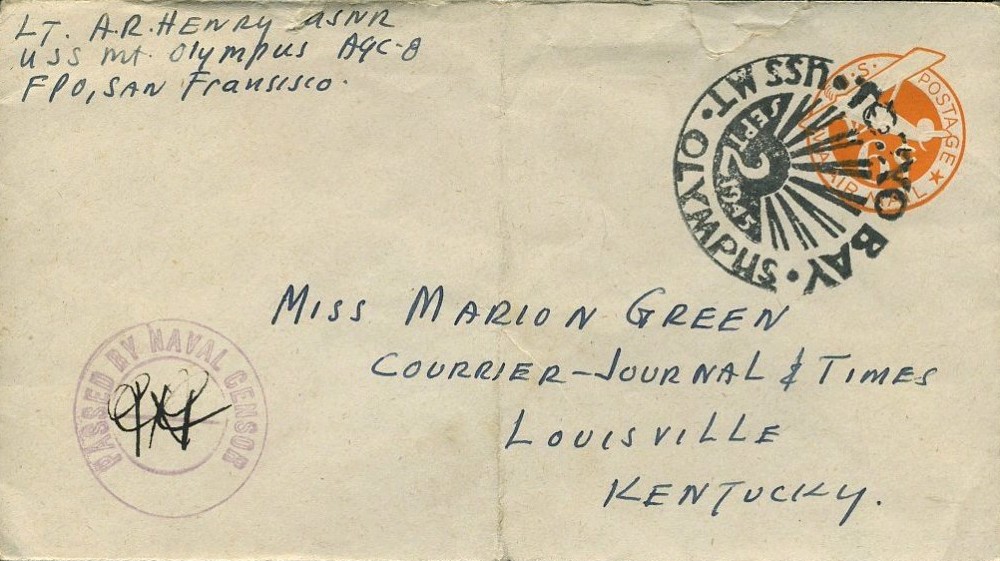 LT. A.R. HENRY USNR
USS Mt. Olympus AGC-8
FPO, SAN Fransisco.
USS MT. OLYMPUS • TOKYO BAY •
SEPT 2 1945
U.S. POSTAGE
6¢
VIA AIR MAIL
MISS MARION GREEN
COURRIER-JOURNAL & TIMES
LOUISVILLE
KENTUCKY.
PASSED BY NAVAL CENSOR